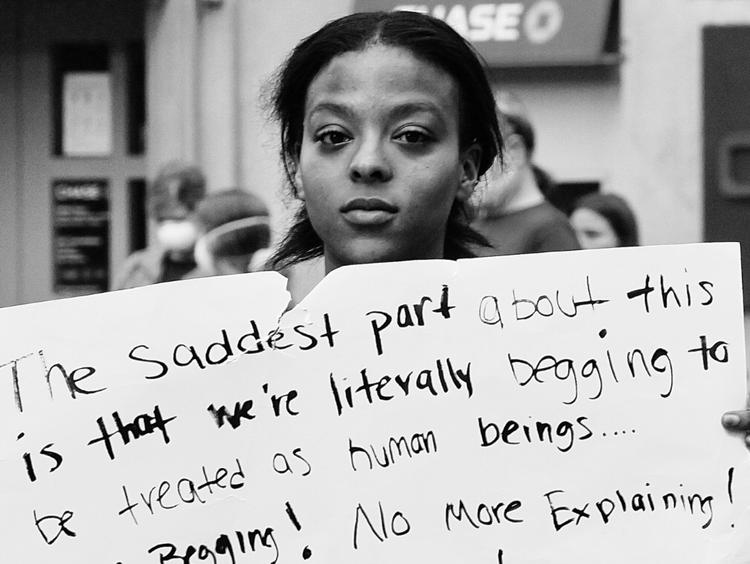 CHASE
CHASE
The Saddest part about this
is that we're literally begging to
be treated as human beings....
Begging! No More Explaining!